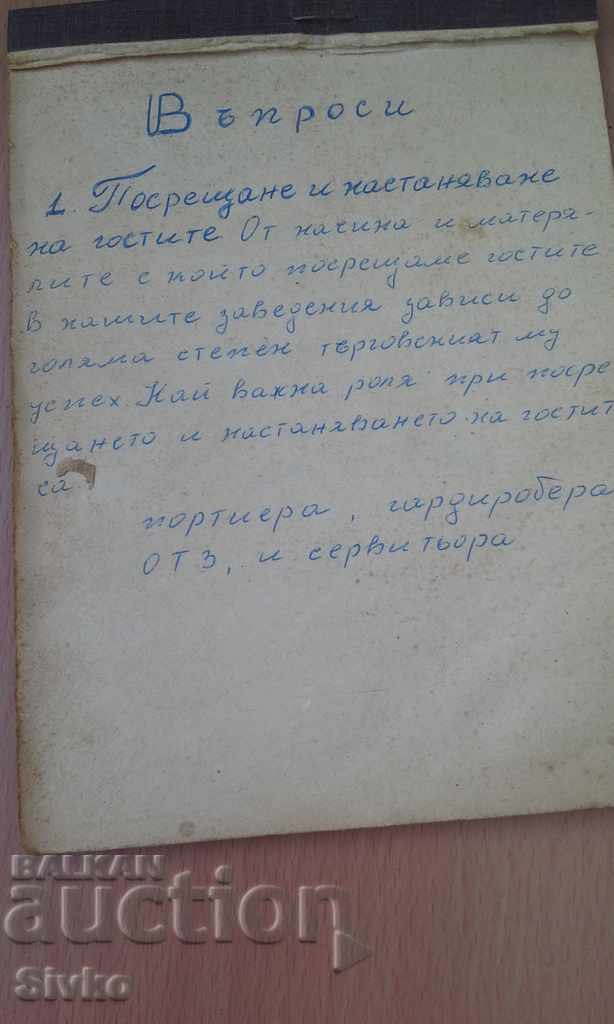 Въпроси
1. Посрещане и настаняване
на гостите. От начина и матеря-
лите с който посрещаме гостите
в нашите заведения зависи до
голяма степен търговският му
успех. Най важна роля при посре
щането и настаняването на гостит
са
портиера, гардиробера
ОТЗ, и сервитьора
BALKAN
auction
Sivko